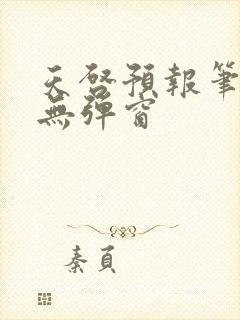 天啓預報筆
無彈窗
秦頁